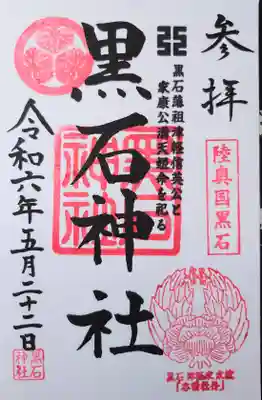 参拝
陸奥国黒石
黒石藩祖津軽信英公と
家康公満天姫命を祀る
黒石神社
黒石神社
令和六年五月二十二日
黒石神社
黒石